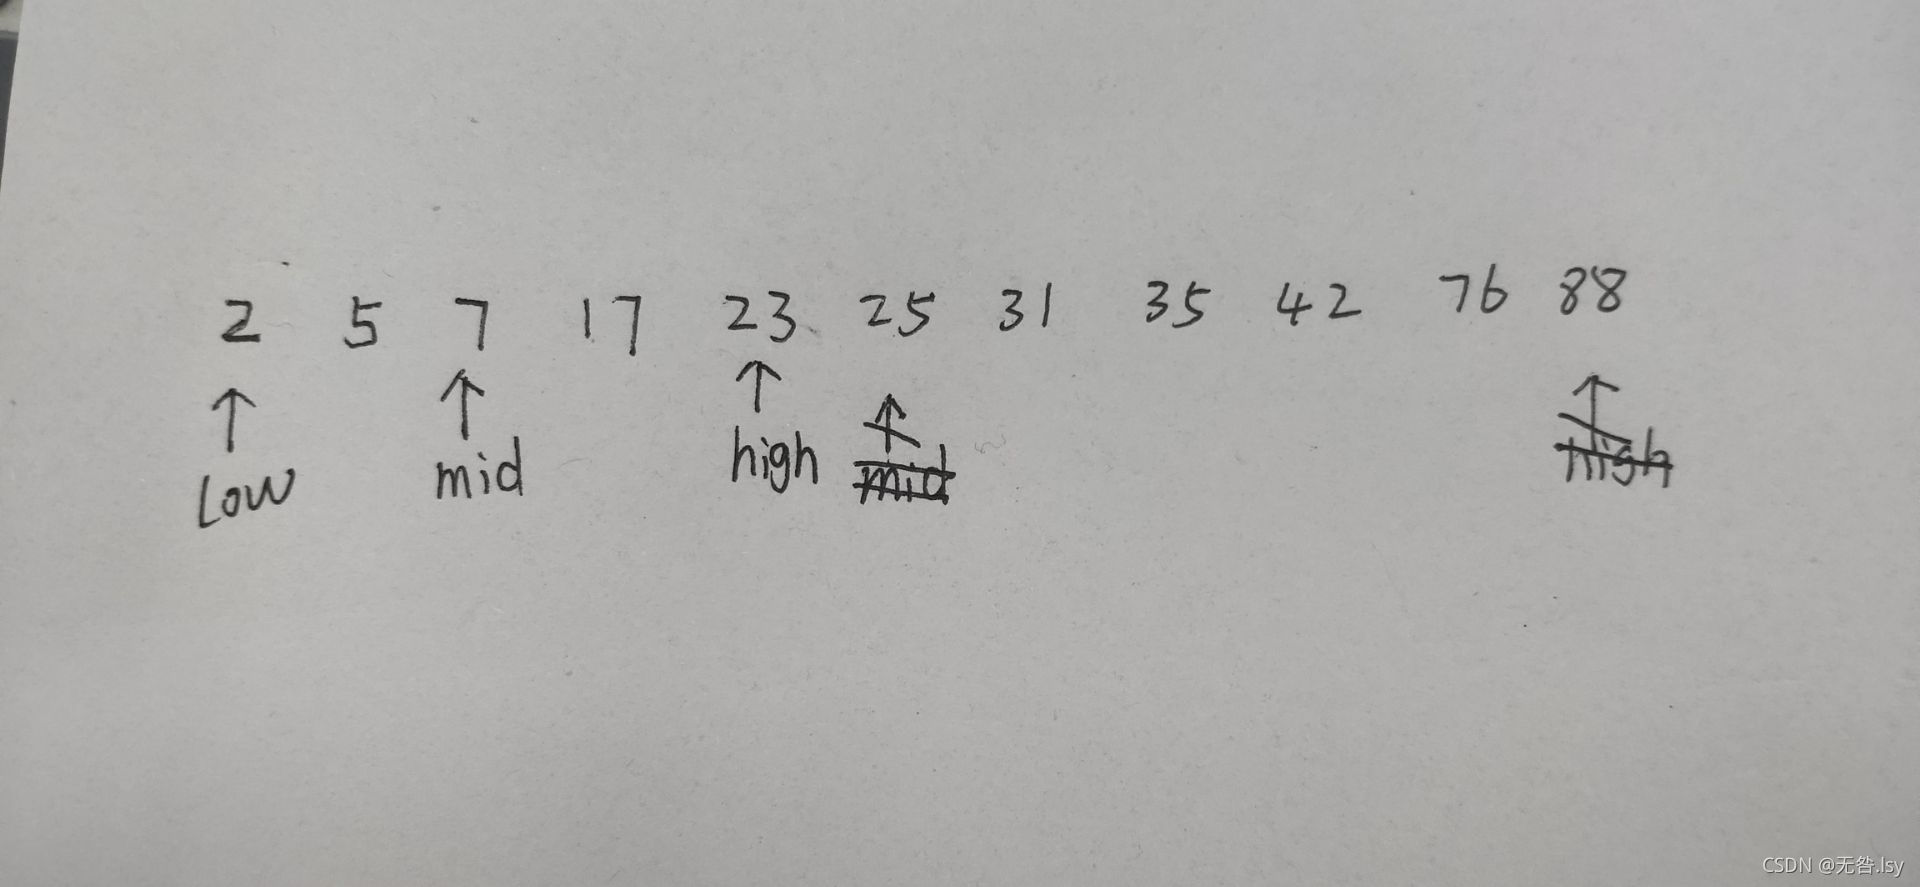 2 5 7 17 23 25 31 35 42 76 88
low mid high mid high
CSDN @无咎.lsy